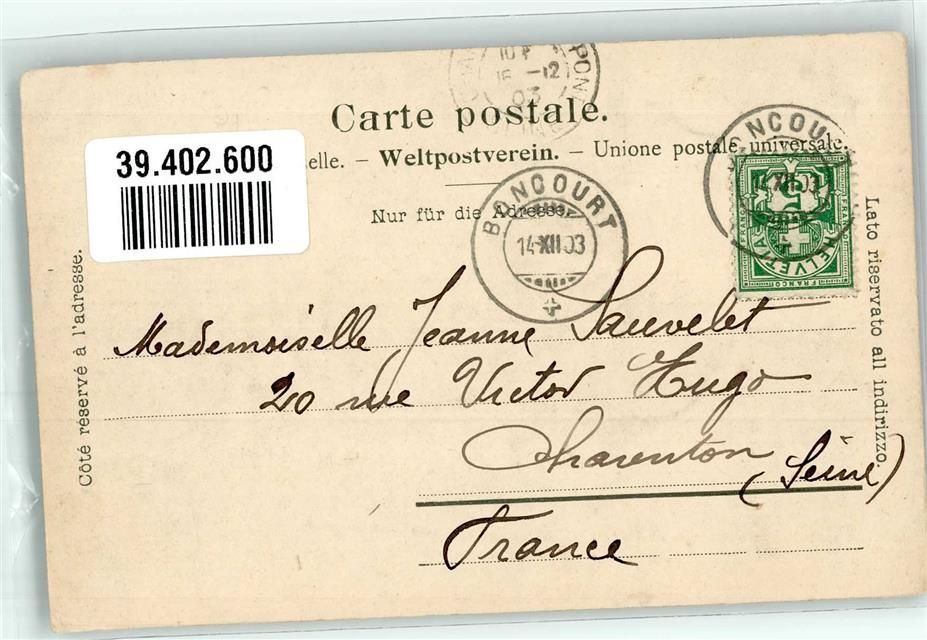 15 -12
03
Carte postale.
39.402.600
elle. – Weltpostverein. – Unione postale universale.
Nur für die Adresse.
BONCOURT
14.XII.03
BONCOURT
14.XII.03
5
FRANCO
HELVETIA
FRANCO
Côté réservé à l'adresse.
Lato riservato all indirizzo.
Mademoiselle Jeanne Sauvelet
20 rue Victor Hugo
Charenton
(Seine)
France